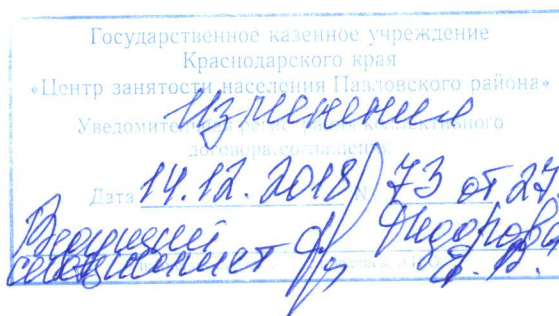 Государственное казенное учреждение
Краснодарского края
«Центр занятости населения Павловского района»
Изменения
Уведомительная регистрация коллективного
договора, соглашения
Дата 14.12.2018 № 73 от 27.
Ведущий Федорова
специалист